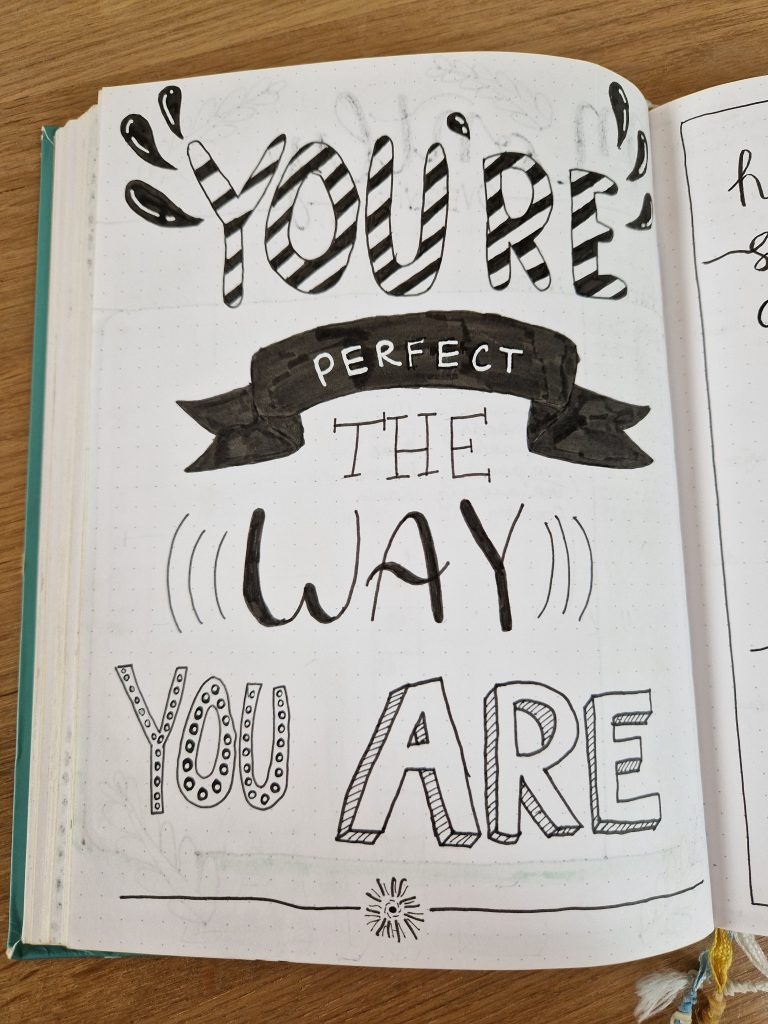 YOU'RE
PERFECT
THE
WAY
YOU ARE